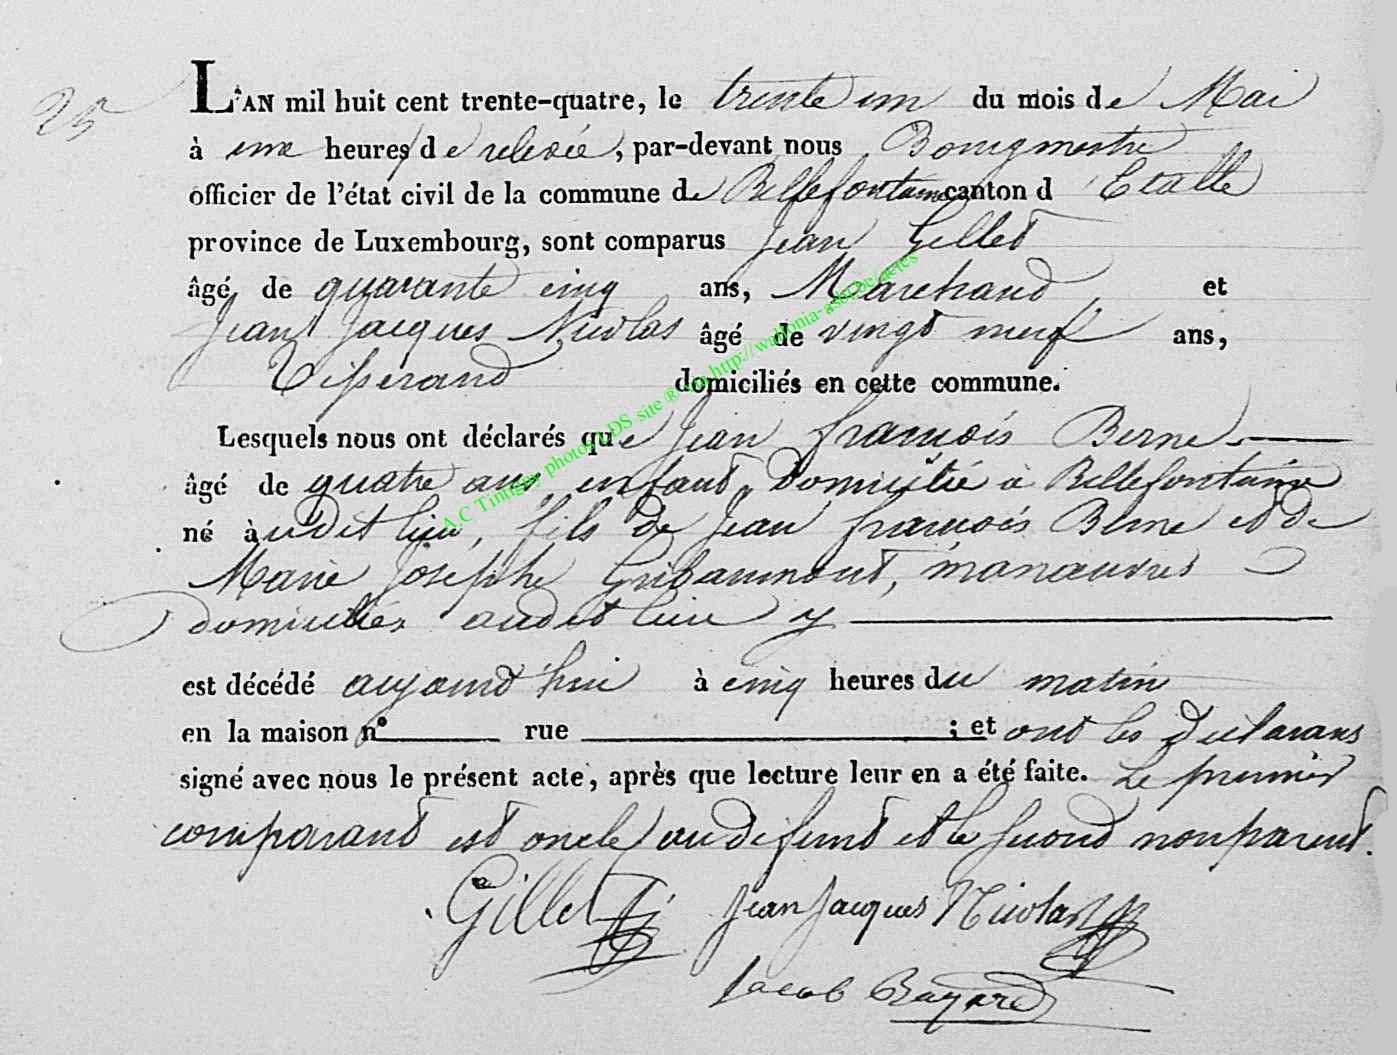 25
L'AN mil huit cent trente-quatre, le trente un du mois de Mai
à une heures de relevée, par-devant nous Bourgmestre
officier de l'état civil de la commune de Bellefontaine canton d Etalle
province de Luxembourg, sont comparus Jean Gillet
âgé de quarante cinq ans, Marchand, et
Jean Jacques Nicolas âgé de vingt neuf ans,
Tisserand domiciliés en cette commune.
Lesquels nous ont déclarés que Jean françois Berne
âgé de quatre ans enfant, domicilié à Bellefontaine
né audit lieu, fils de Jean françois Berne et de
Marie Josephe Gribaumont, manœuvres
domiciliés audit lieu y
est décédé aujourd'hui à cinq heures du matin
en la maison n° rue ; et ont les Declarans
signé avec nous le présent acte, après que lecture leur en a été faite. Le premier
comparant est oncle au defunt et le second non parent.
Gillet Jean Jacques Nicolas
Jacob Bayard
A.C Tintigny photos LDS site ® via http://wallonia-asbl.be/actes